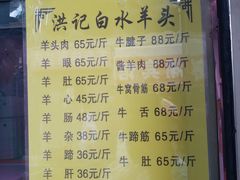 洪记白水羊头
羊头肉 65元/斤 牛腱子 88元/斤
羊 眼 65元/斤 酱羊肉 88元/斤
羊 肚 65元/斤 牛窝骨筋 68元/斤
羊 心 45元/斤 牛 舌 68元/斤
羊 肠 48元/斤 牛蹄筋 65元/斤
羊 杂 38元/斤 牛 肚 65元/斤
羊 蹄 36元/斤
羊 肝 36元/斤